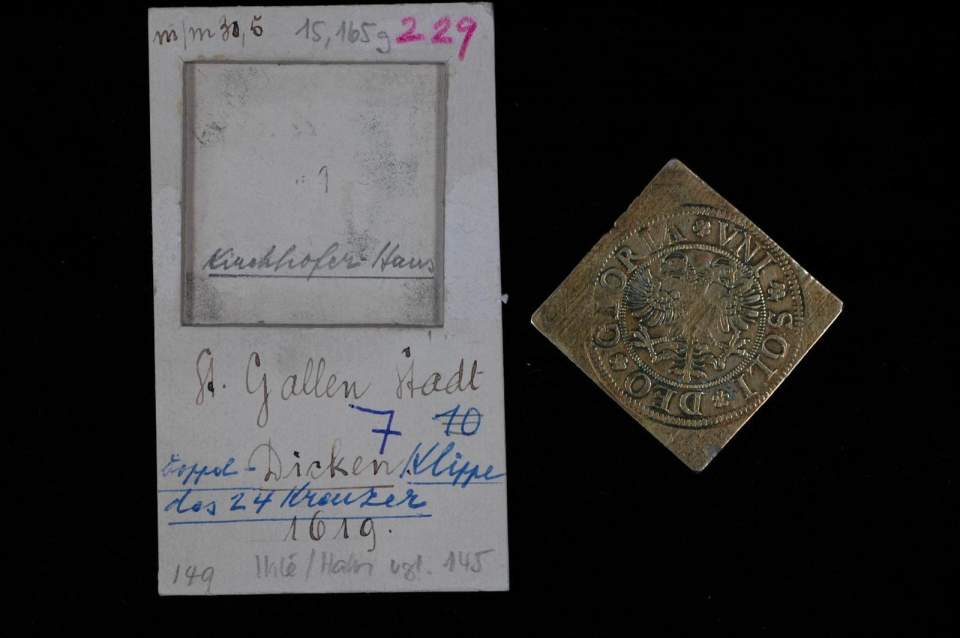 m/m 30,5 15,165g 229
Kirchhofer Haus
St. Gallen Stadt
7 10
Doppel-Dicken Klippe
des 24 Kreuzer
1619.
149 Iklé/Hahn vgl. 145
UNI ✿ SOLI ✿ DEO ✿ GLORIA ✿